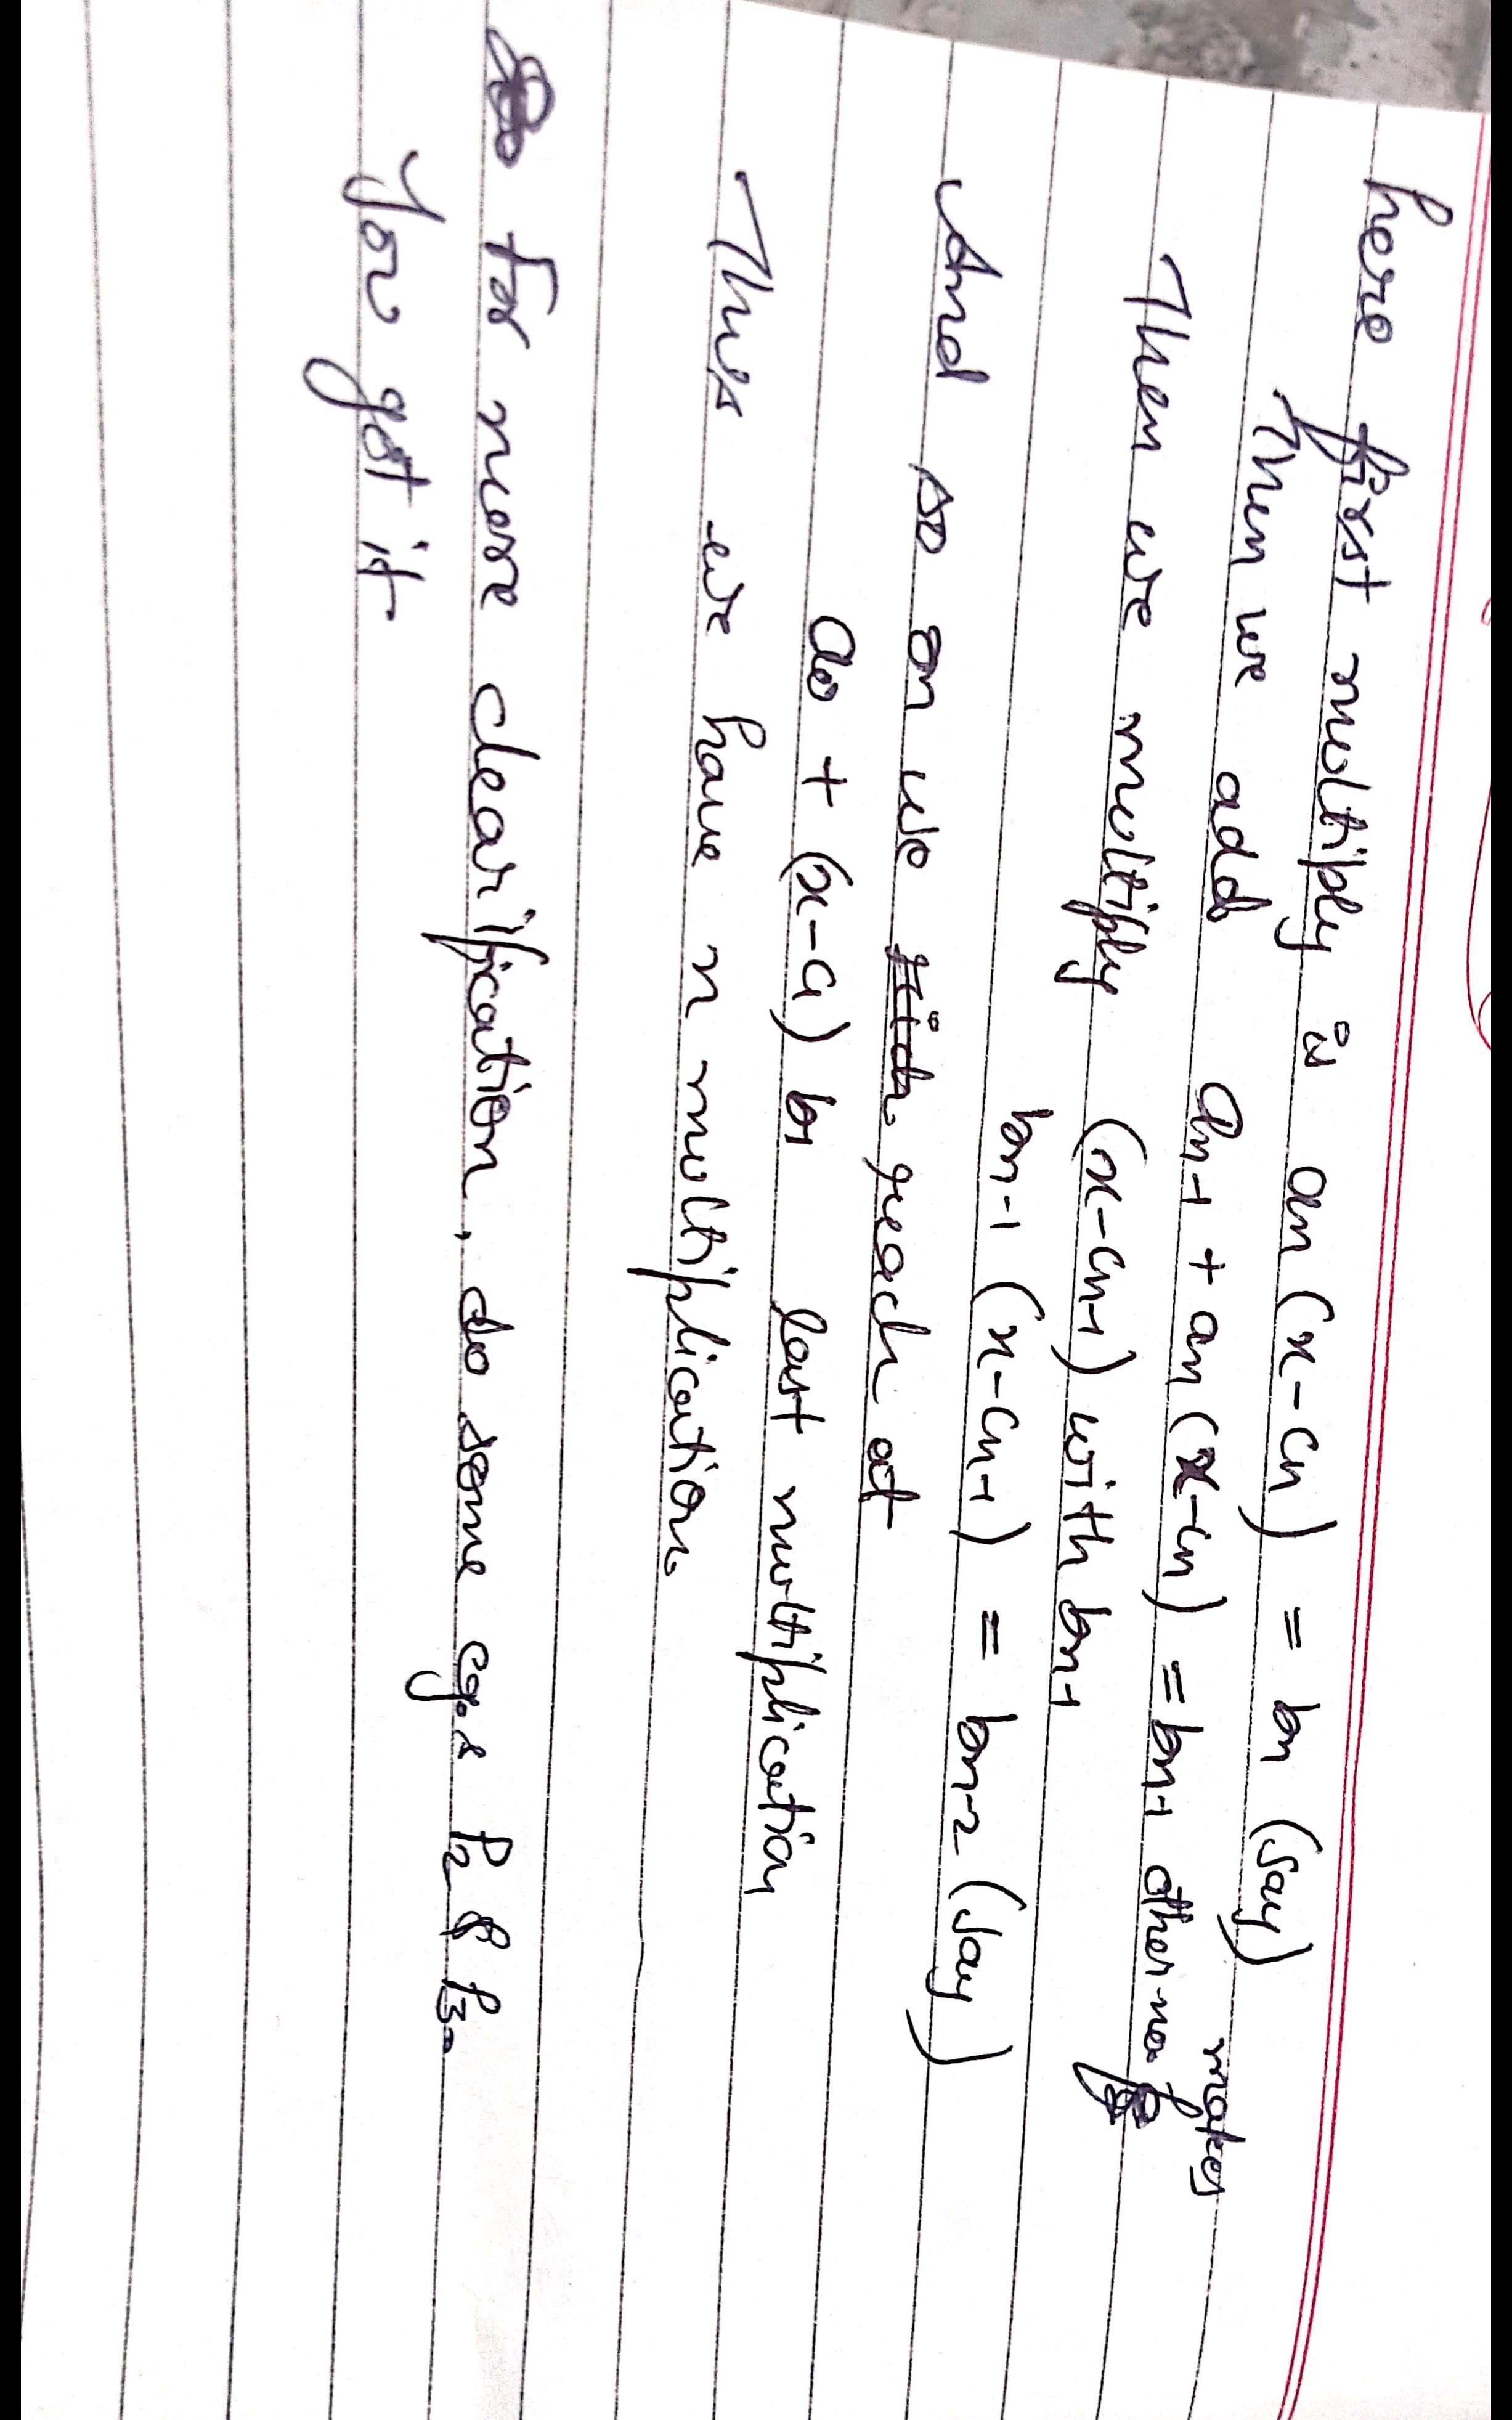 here first multiply is an (x-cn) = bn (say)
Then we add an-1 + an (x-cn) = bn-1 other no. makes
Then we multiply (x-cn-1) with bn-1
bn-1 (x-cn-1) = bn-2 (say)
And so on we reach at
ao + (x-c1) b1 last multiplication
Thus we have n multiplication.
For more clearification, do some egs P2 & P3.
You got it